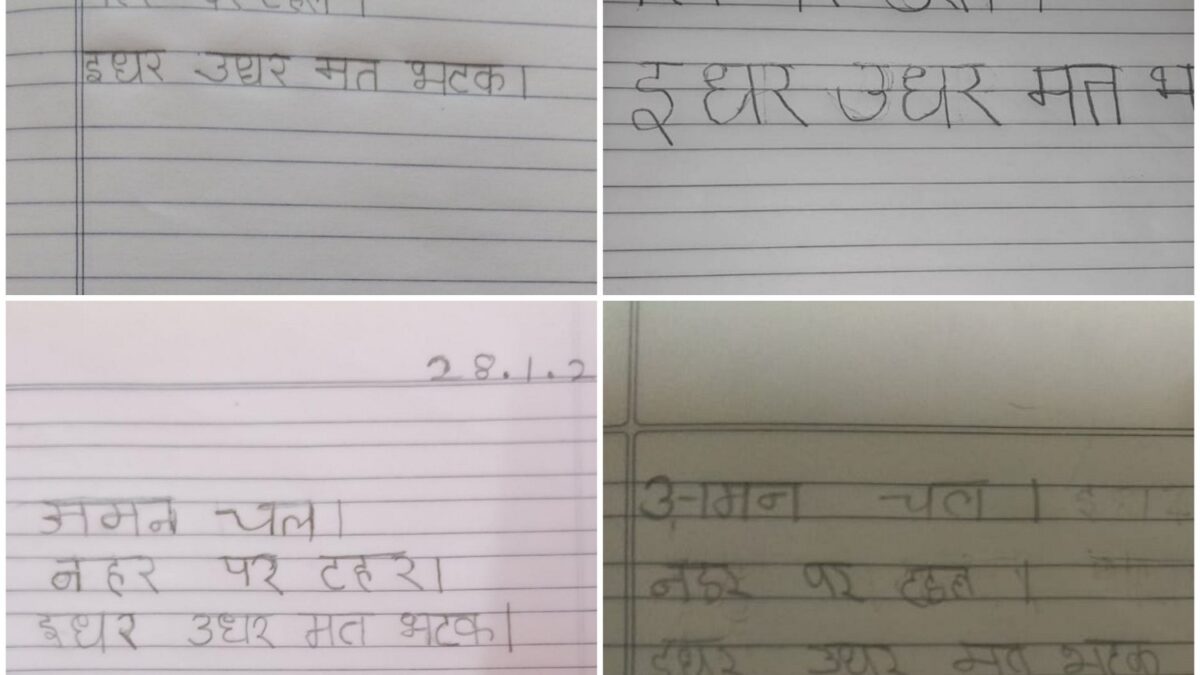 पर टहल।
इधर उधर मत भटक।
इधर उधर मत भ
28.1.2
अमन चल।
नहर पर टहर।
इधर उधर मत भटक।
अमन चल ।
नहर पर टहल ।
इधर उधर मत भटक